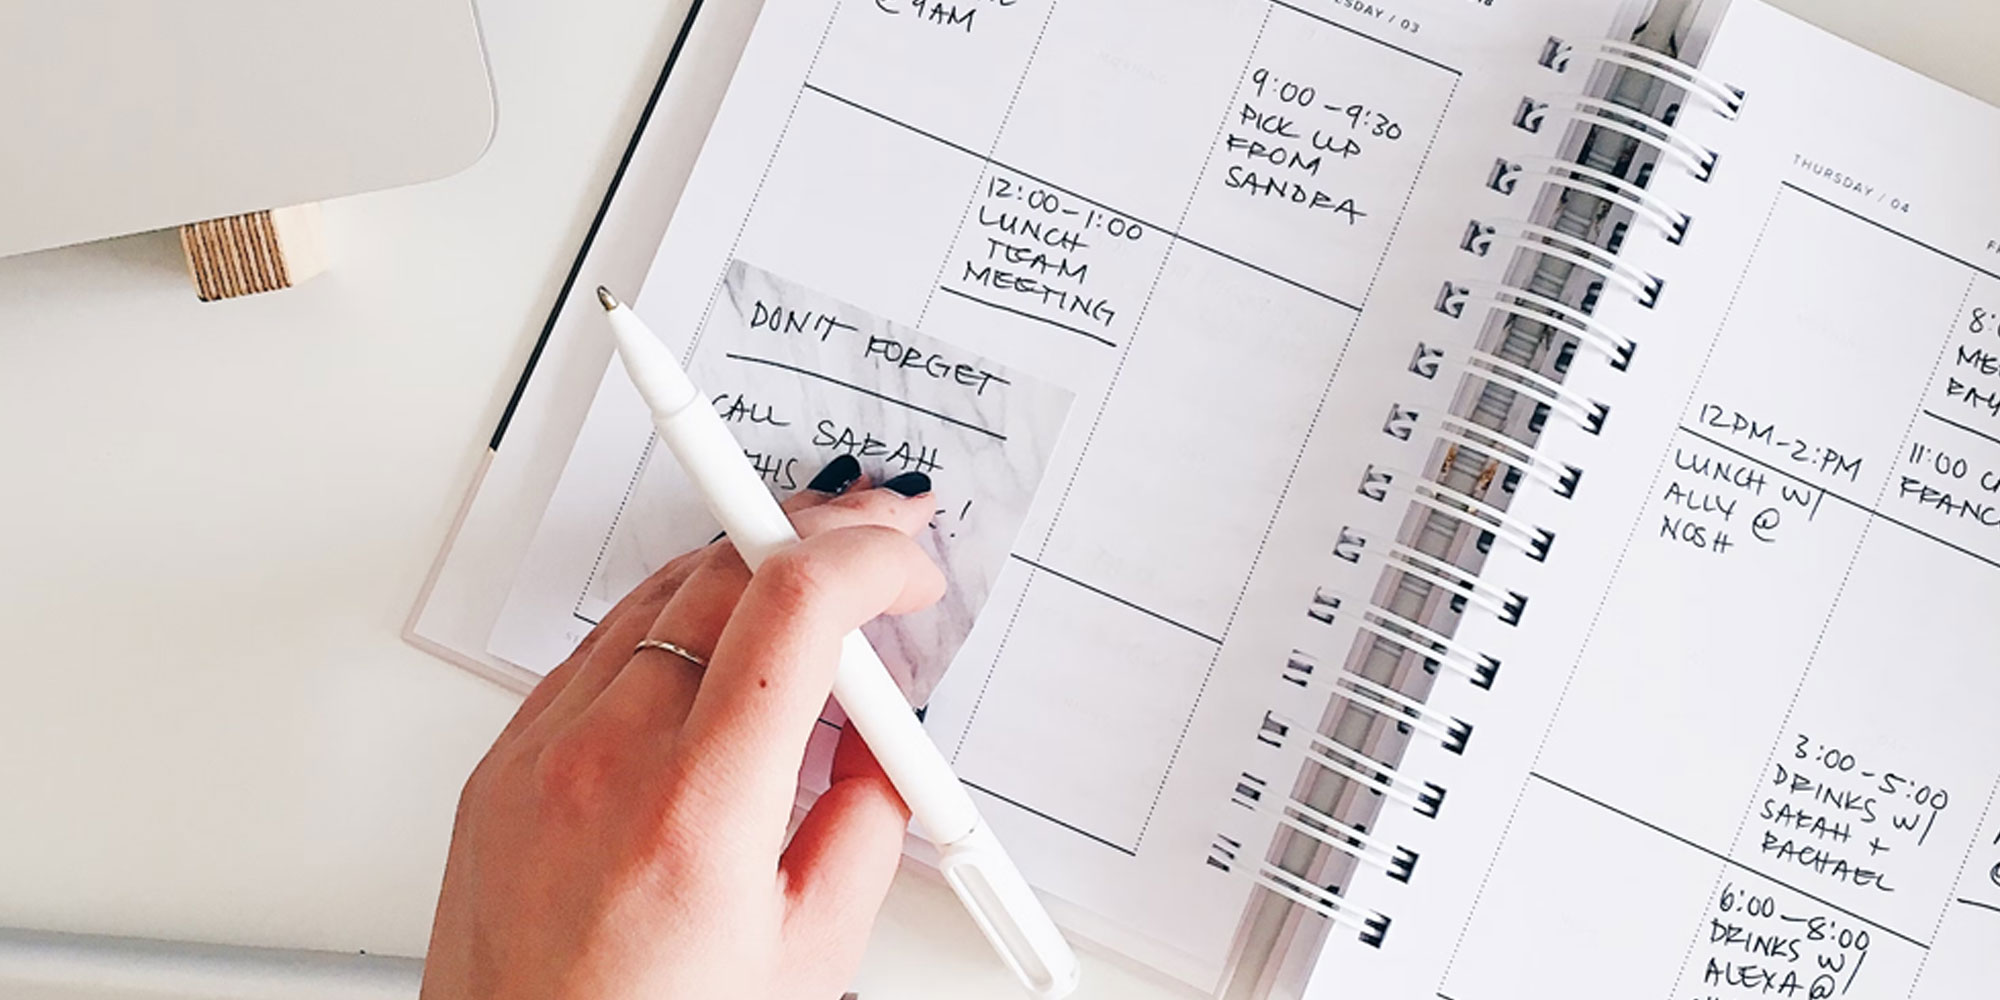 @ 9AM
SDAY / 03
9:00-9:30
PICK UP
FROM
SANDRA
12:00-1:00
LUNCH
TEAM
MEETING
DON'T FORGET
CALL SARAH
THIS
!
THURSDAY / 04
12PM-2:PM
LUNCH W/
ALLY @
NOSH
3:00-5:00
DRINKS W/
SARAH +
RACHAEL
6:00-8:00
DRINKS W/
ALEXA @
11:00